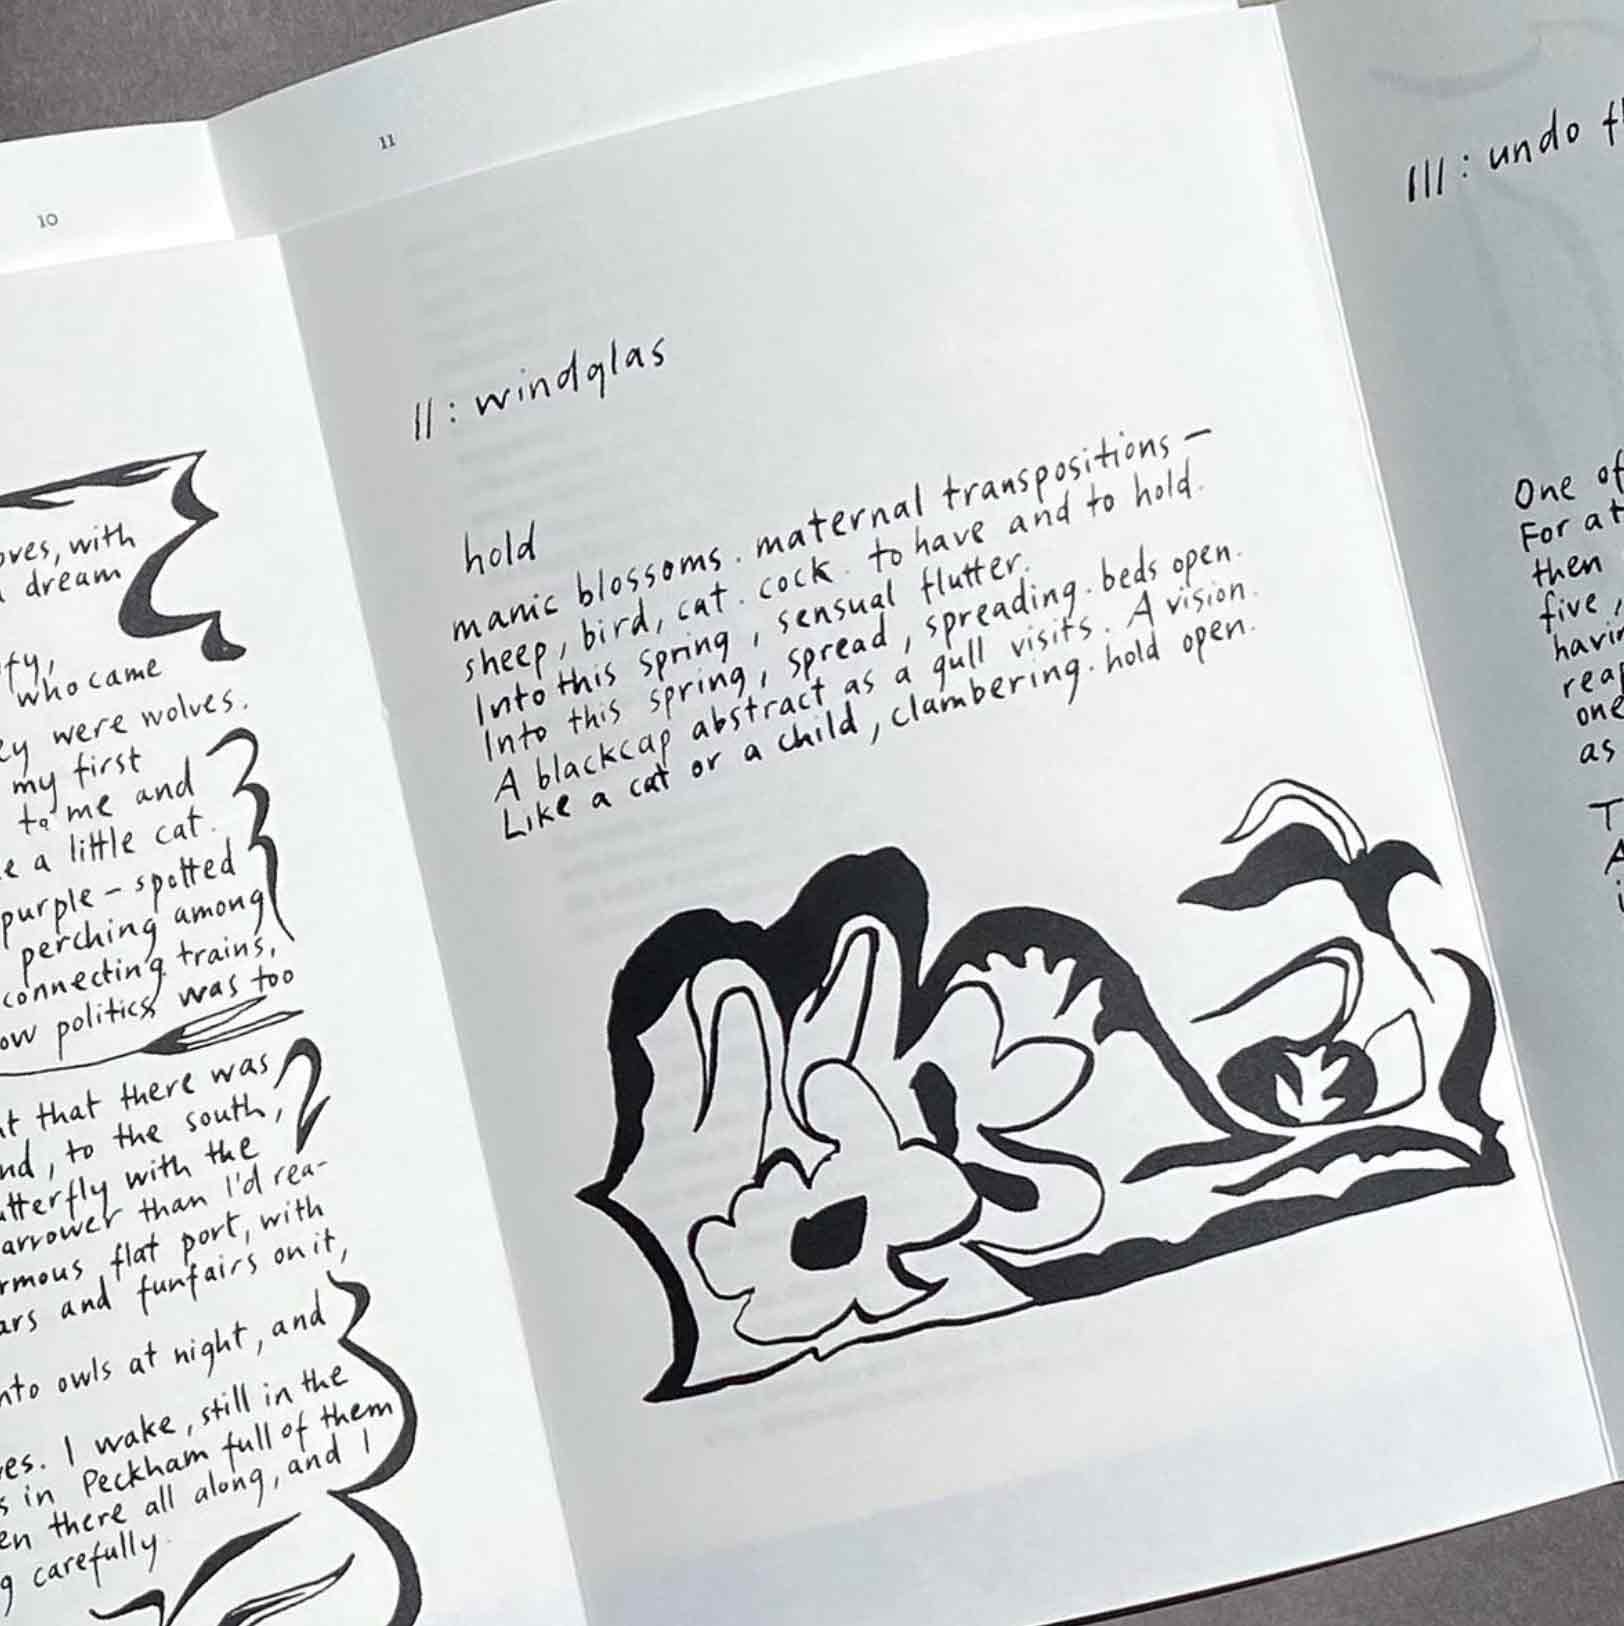 10
oves, with
dream
who came
ey were wolves.
my first
to me and
a little cat.
purple – spotted
perching among
connecting trains,
ow politics was too
t that there was
nd, to the south,
utterfly with the
arrower than I'd rea-
rmous flat port, with
ars and funfairs on it,
nto owls at night, and
es. I wake, still in the
s in Peckham full of them
en there all along, and I
g carefully.
11
II : windglas
hold
manic blossoms. maternal transpositions –
sheep, bird, cat. cock. to have and to hold.
Into this spring, sensual flutter.
Into this spring, spread, spreading. beds open.
A blackcap abstract as a gull visits. A vision.
Like a cat or a child, clambering. hold open.
III : undo
One of
For a
then
five,
havin
reap
one
as